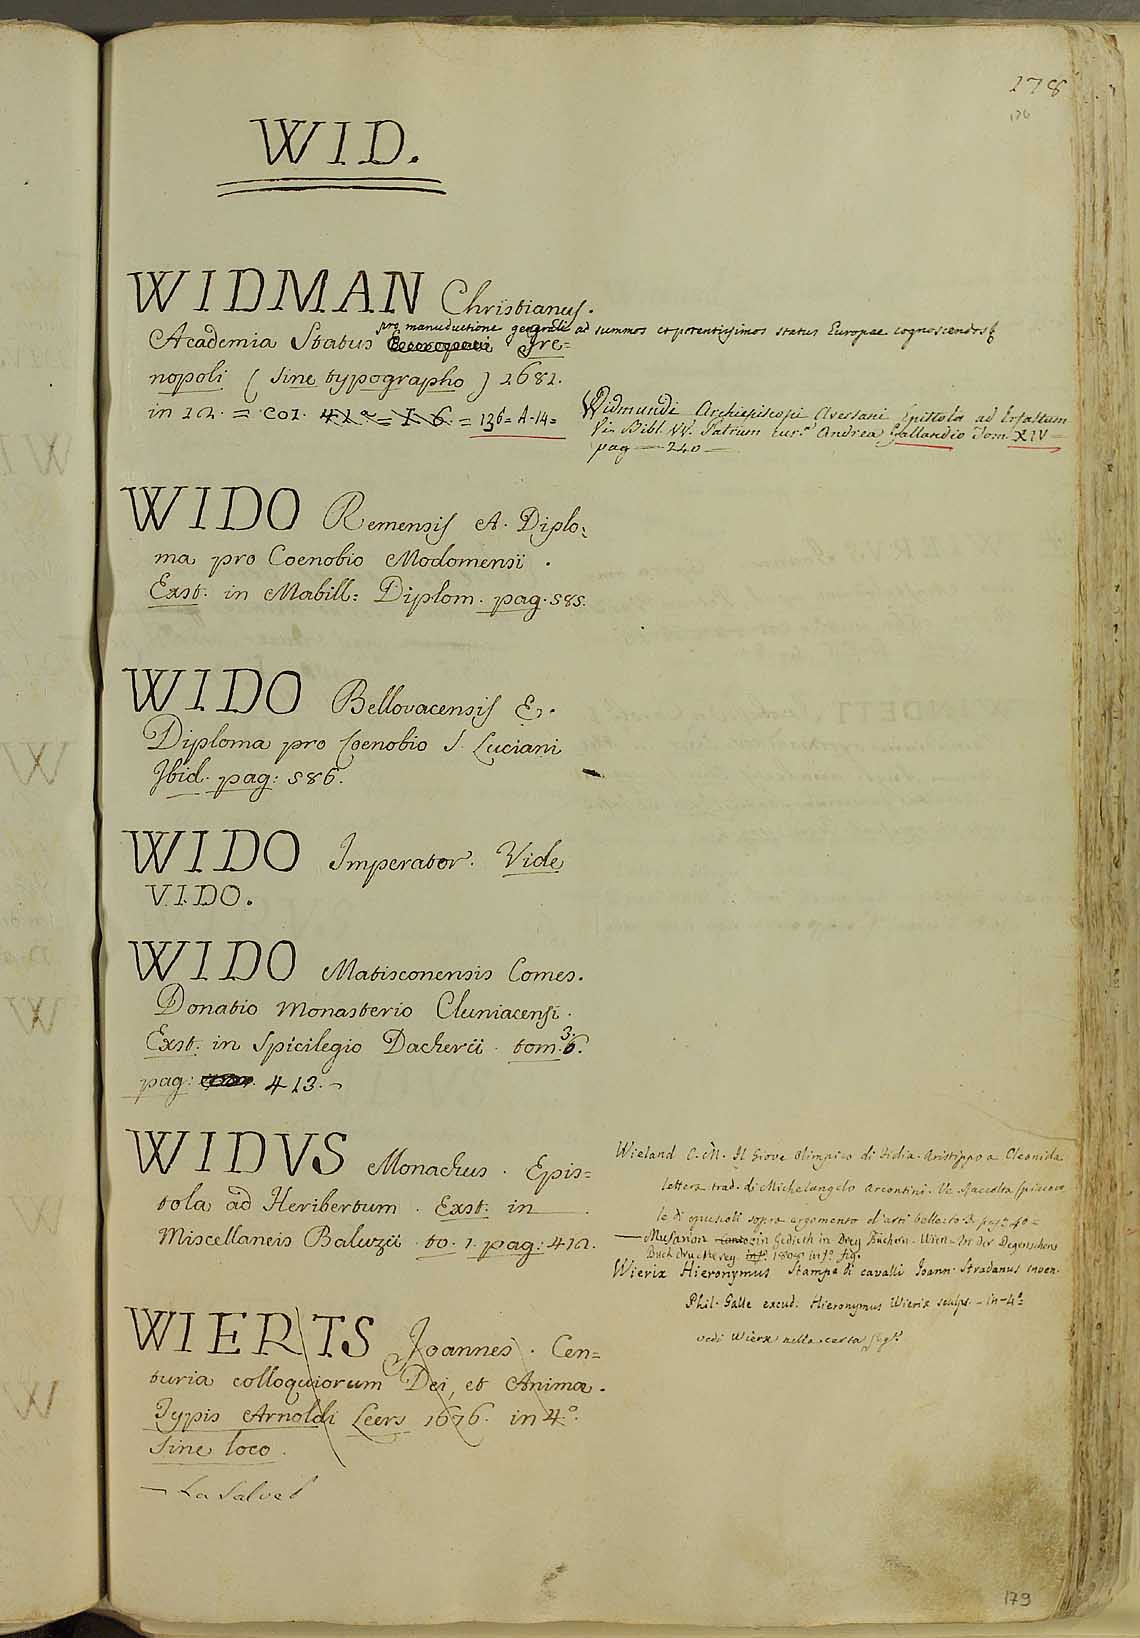 178
176
WID.
WIDMAN Christianus.
pro manuductione generali ad summos et potentissimos status Europae cognoscendos
Academia Status Ire=
nopoli ( sine typographo ) 1681.
in 12. = CO1. 41 a = I. 6. = 136 = A. 14 =
Widmundi Archiepiscopi Aversani Epistola ad Erfastum
Vin Bibl. VV. Patrum cur.ª Andrea Gallandio Tom. XIV —
pag — 240 —
WIDO Remensis A. Diplo:
ma pro Coenobio Modomensi .
Exst: in Mabill: Diplom. pag. 585.
WIDO Bellovacensis E.
Diploma pro Coenobio S. Luciani
Ibid. pag: 586.
WIDO Imperator. Vide
VIDO.
WIDO Matisconensis Comes.
Donatio Monasterio Cluniacensi.
Exst: in Spicilegio Dacherii. tom. 6. 3.
pag: 413. -
WIDVS Monachus. Epis=
tola ad Heribertum. Exst: in
Miscellaneis Baluzii. to. 1. pag: 412.
Wieland C. M. Il Giove Olimpico di Fidia. Aristippo a Cleonida
lettera trad. di Michelangelo Arcontini. Ve Raccolta
le di opuscoli sopra argomento d'arti belle to 3. pag 40 =
— Musarion in Gedicth in drey Büchern. Wien - In der Degenschen
Buchdruckerey in fº. 1808 in fº. fig.
Wierix Hieronymus Stampe di cavalli Joann. Stradanus inven.
Phil. Galle excud. Hieronymus Wierix sculps. - in - 4º
vedi Wierx nella carta seg.e
WIERTS Joannes. Cen=
turia colloquiorum Dei, et Animæ.
Typis Arnoldi Leers 1676. in 4.º
Sine loco.
— La Salvet
179